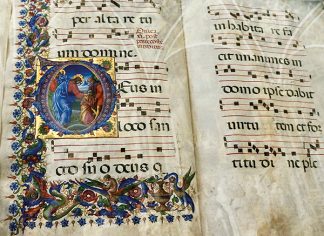 per al ta re tu
um domine.
DEus in
loco san
cto su o deus q
in habita re fa
cit unanimes in
domo ipse dabit
virtu tem et for
titu di ne ple